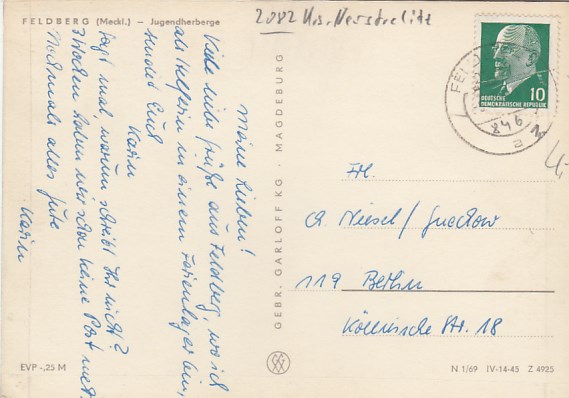 FELDBERG (Meckl.) — Jugendherberge
2082 Krs. Neustrelitz
Meine Lieben!
Viele liebe Grüße aus Feldberg, wo ich
als Helferin in einem Ferienlager bin,
sendet Euch
Karin
Sagt mal, warum schreibt Ihr nicht?
3 Wochen haben wir schon keine Post mehr.
Nochmals alles Gute
Karin
EVP -,25 M
GEBR. GARLOFF KG · MAGDEBURG
10
DEUTSCHE
DEMOKRATISCHE REPUBLIK
Frl.
A. Niesel/Guckow
119 Berlin
Köllnische Str. 18
N 1/69 IV-14-45 Z 4925